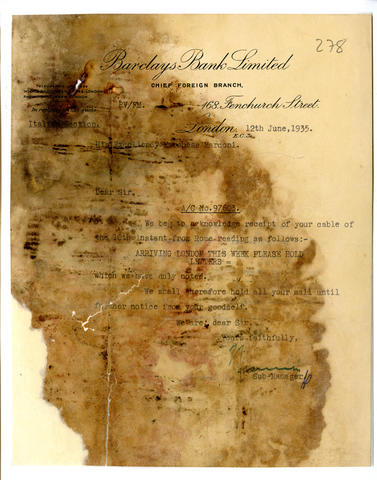 278
Barclays Bank Limited
CHIEF FOREIGN BRANCH,
RV/FM. 168, Fenchurch Street.
London. 12th June, 1935.
E.C.3.
Italian Section.
His Excellency Marchese Marconi.
Dear Sir,
A/C No.97602.
We beg to acknowledge receipt of your cable of
the 10th instant from Rome reading as follows:-
ARRIVING LONDON THIS WEEK PLEASE HOLD
LETTERS
which we have duly noted.
We shall therefore hold all your mail until
further notice from your goodself.
We are, dear Sir,
Yours faithfully,
Sub-Manager